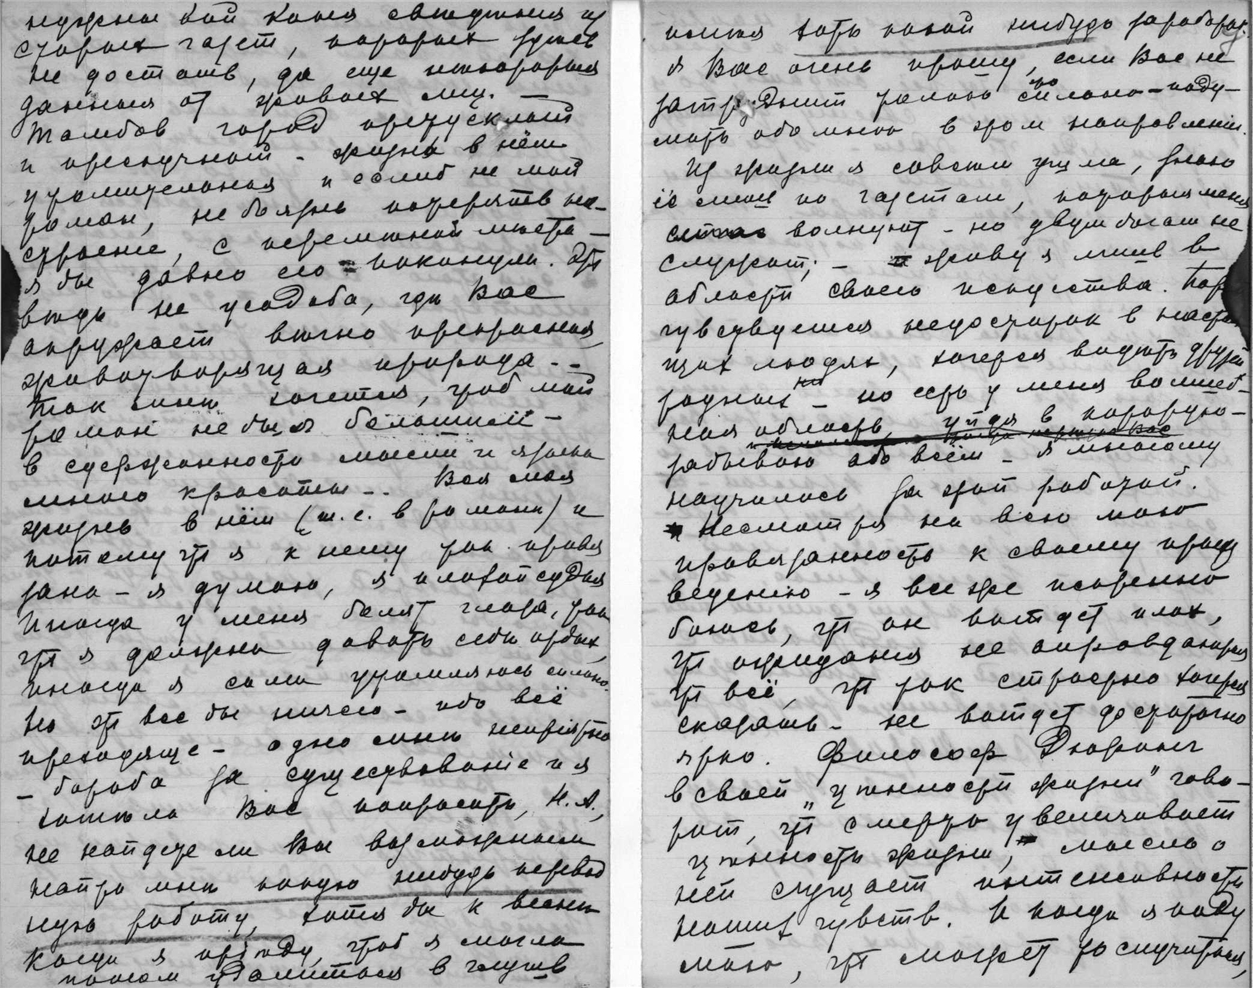 нужны кой какія свѣдѣнія из
старых газет, которых здѣсь
не достать, да еще некоторыя
данныя от живых лиц. —
Тамбов город
и прескучный - жизнь в нём
утомительная и еслиб не мой
роман, не боязнь потерять на-
строеніе, с переменой мѣста —
я бы давно его покинула. Это
вѣдь не усадьба, гдѣ Вас
окружает вѣчно прекрасная,
животворящая природа..
Так мнѣ хочется, чтоб мой
роман не был большим —
в сдержанности мысли и
много красоты.. Вся моя
жизнь в нём (т.е. в романѣ) и
потому что я к нему так привя
зана - я думаю, я плохой судья
Иногда у меня болят глаза, так
что я должна давать себѣ отдых,
иногда я сама утомляюсь сильно.
Но это все бы ничего - ибо всё
преходяще - одно мнѣ непріятно
— борьба за существованіе и я
хотѣла Вас попросить, Н. А.,
не найдете ли Вы возможным
найти мнѣ какую нибудь перевод
ную работу, хотя бы к веснѣ
когда я пріѣду, чтоб я могла
потом удалиться в глушь
имѣя хоть какой нибудь заработок.
Я Вас очень прошу, если Вас не
затруднит только сильно - поду-
мать обо мнѣ в этом направленіи.
Из жизни я совсѣм ушла, знаю
ее лишь по газетам, которыя меня
волнуют - но двум богам не
служат; - живу я лишь в
области своего искусства.
чувствуется недостаток в настоя
щих людях, хочется видѣть друзей
родных - но есть у меня волшеб-
ная область, уйдя в которую -
забываю обо всём - Я многому
научилась за этой работой.
Несмотря на всю мою
привязанность к своему произ
веденію - я все же искренно
боюсь, что он выйдет плох,
что ожиданія не оправдаются
что всё, что так страстно хочется
сказать - не выйдет достаточно
ярко. Философ Дюринг
в своей „цѣнности жизни" гово-
рит, что смерть увеличивает
цѣнность жизни, мысль о
ней сгущает интенсивность
наших чувств. И когда я поду
маю, что может то случиться,